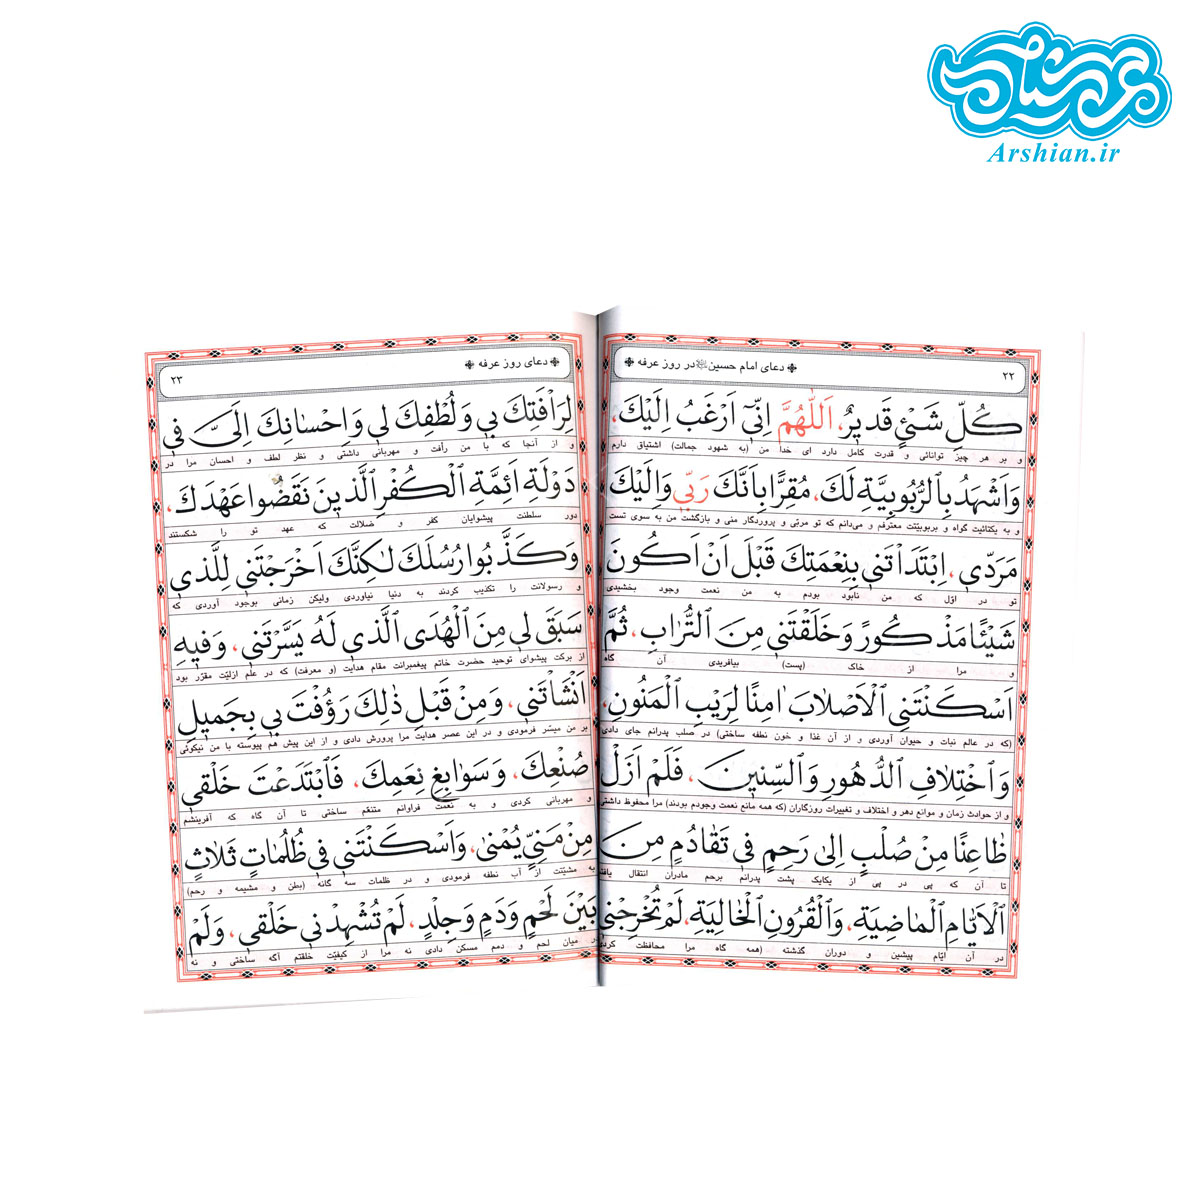 عرشیان
Arshian.ir
۲۲
دعای امام حسین در روز عرفه
كُلِّ شَيْئٍ قَديرٌ، اَللّٰهُمَّ اِنّى اَرْغَبُ اِلَيْكَ،
و بر هر چیز توانائی و قدرت کامل دارد ای خدا من (به شهود جمالت) اشتیاق دارم
وَاَشْهَدُ بِالرُّبُوبِيَّةِ لَكَ، مُقِرًّا بِاَنَّكَ رَبّى وَاِلَيْكَ
و به یکتائیت گواه و بربوبیّتت معترفم و می‌دانم که تو مربّی و پروردگار منی و بازگشت من به سوی تست
مَرَدّى، اِبْتَدَاْتَنى بِنِعْمَتِكَ قَبْلَ اَنْ اَكُونَ
تو در اوّل که من نابود بودم به من نعمت وجود بخشیدی
شَيْئًا مَذْكُورً وَخَلَقْتَنى مِنَ التُّرابِ، ثُمَّ
و مرا از خاک (پست) بیافریدی آن گاه
اَسْكَنْتَنِى الْاَصْلابَ اٰمِنًا لِرَيْبِ الْمَنُونِ،
(که در عالم نبات و حیوان آوردی و از آن غذا و خون نطفه ساختی) در صلب پدرانم جای دادی
وَاخْتِلافِ الدُّهُورِ وَالسِّنينَ، فَلَمْ اَزَلْ
و از حوادث زمان و موانع دهر و اختلاف و تغییرات روزگاران (که همه مانع نعمت وجودم بودند) مرا محفوظ داشتی
ظاعِنًا مِنْ صُلْبٍ اِلىٰ رَحِمٍ فى تَقادُمٍ مِنَ
تا آن که پی در پی از یکایک پشت پدرانم برحم مادران انتقال یافته
الْاَيّامِ الْماضِيَةِ، وَالْقُرُونِ الْخالِيَةِ، لَمْ تُخْرِجْنى
در آن ایّام پیشین و دوران گذشته (همه گاه مرا محافظت کردی
۲۳
دعای روز عرفه
لِرَاْفَتِكَ بى وَلُطْفِكَ لى وَاِحْسانِكَ اِلَىَّ فى
و از آنجا که با من رأفت و مهربانی داشتی و نظر لطف و احسان مرا در
دَوْلَةِ اَئِمَّةِ الْكُفْرِ الَّذينَ نَقَضُوا عَهْدَكَ،
دور سلطنت پیشوایان کفر و ضلالت که عهد تو را شکستند
وَكَذَّبُوا رُسُلَكَ لٰكِنَّكَ اَخْرَجْتَنى لِلَّذى
و رسولانت را تکذیب کردند به دنیا نیاوردی ولیکن زمانی بوجود آوردی که
سَبَقَ لى مِنَ الْهُدَى الَّذى لَهُ يَسَّرْتَنى، وَفيهِ
از برکت پیشوای توحید حضرت خاتم پیغمبرانت مقام هدایت (و معرفت) که در علم ازلیّت مقرّر بود
اَنْشَاْتَنى، وَمِنْ قَبْلِ ذٰلِكَ رَؤُفْتَ بى بِجَميلِ
بر من میسّر فرمودی و در این عصر هدایت مرا پرورش دادی و از این پیش هم پیوسته با من نیکوئی
صُنْعِكَ، وَسَوابِغِ نِعَمِكَ، فَابْتَدَعْتَ خَلْقى
و مهربانی کردی و به نعمت فراوانم متنعّم ساختی تا آن گاه که آفرینشم
مِنْ مَنِىٍّ يُمْنى، وَاَسْكَنْتَنى فى ظُلُماتٍ ثَلاثٍ
به مشیّتت از آب نطفه فرمودی و در ظلمات سه گانه (بطن و مشیمه و رحم)
بَيْنَ لَحْمٍ وَدَمٍ وَجِلْدٍ، لَمْ تُشْهِدْنى خَلْقى، وَلَمْ
در میان لحم و دمم مسکن دادی نه مرا از کیفیّت خلقتم آگه ساختی و نه